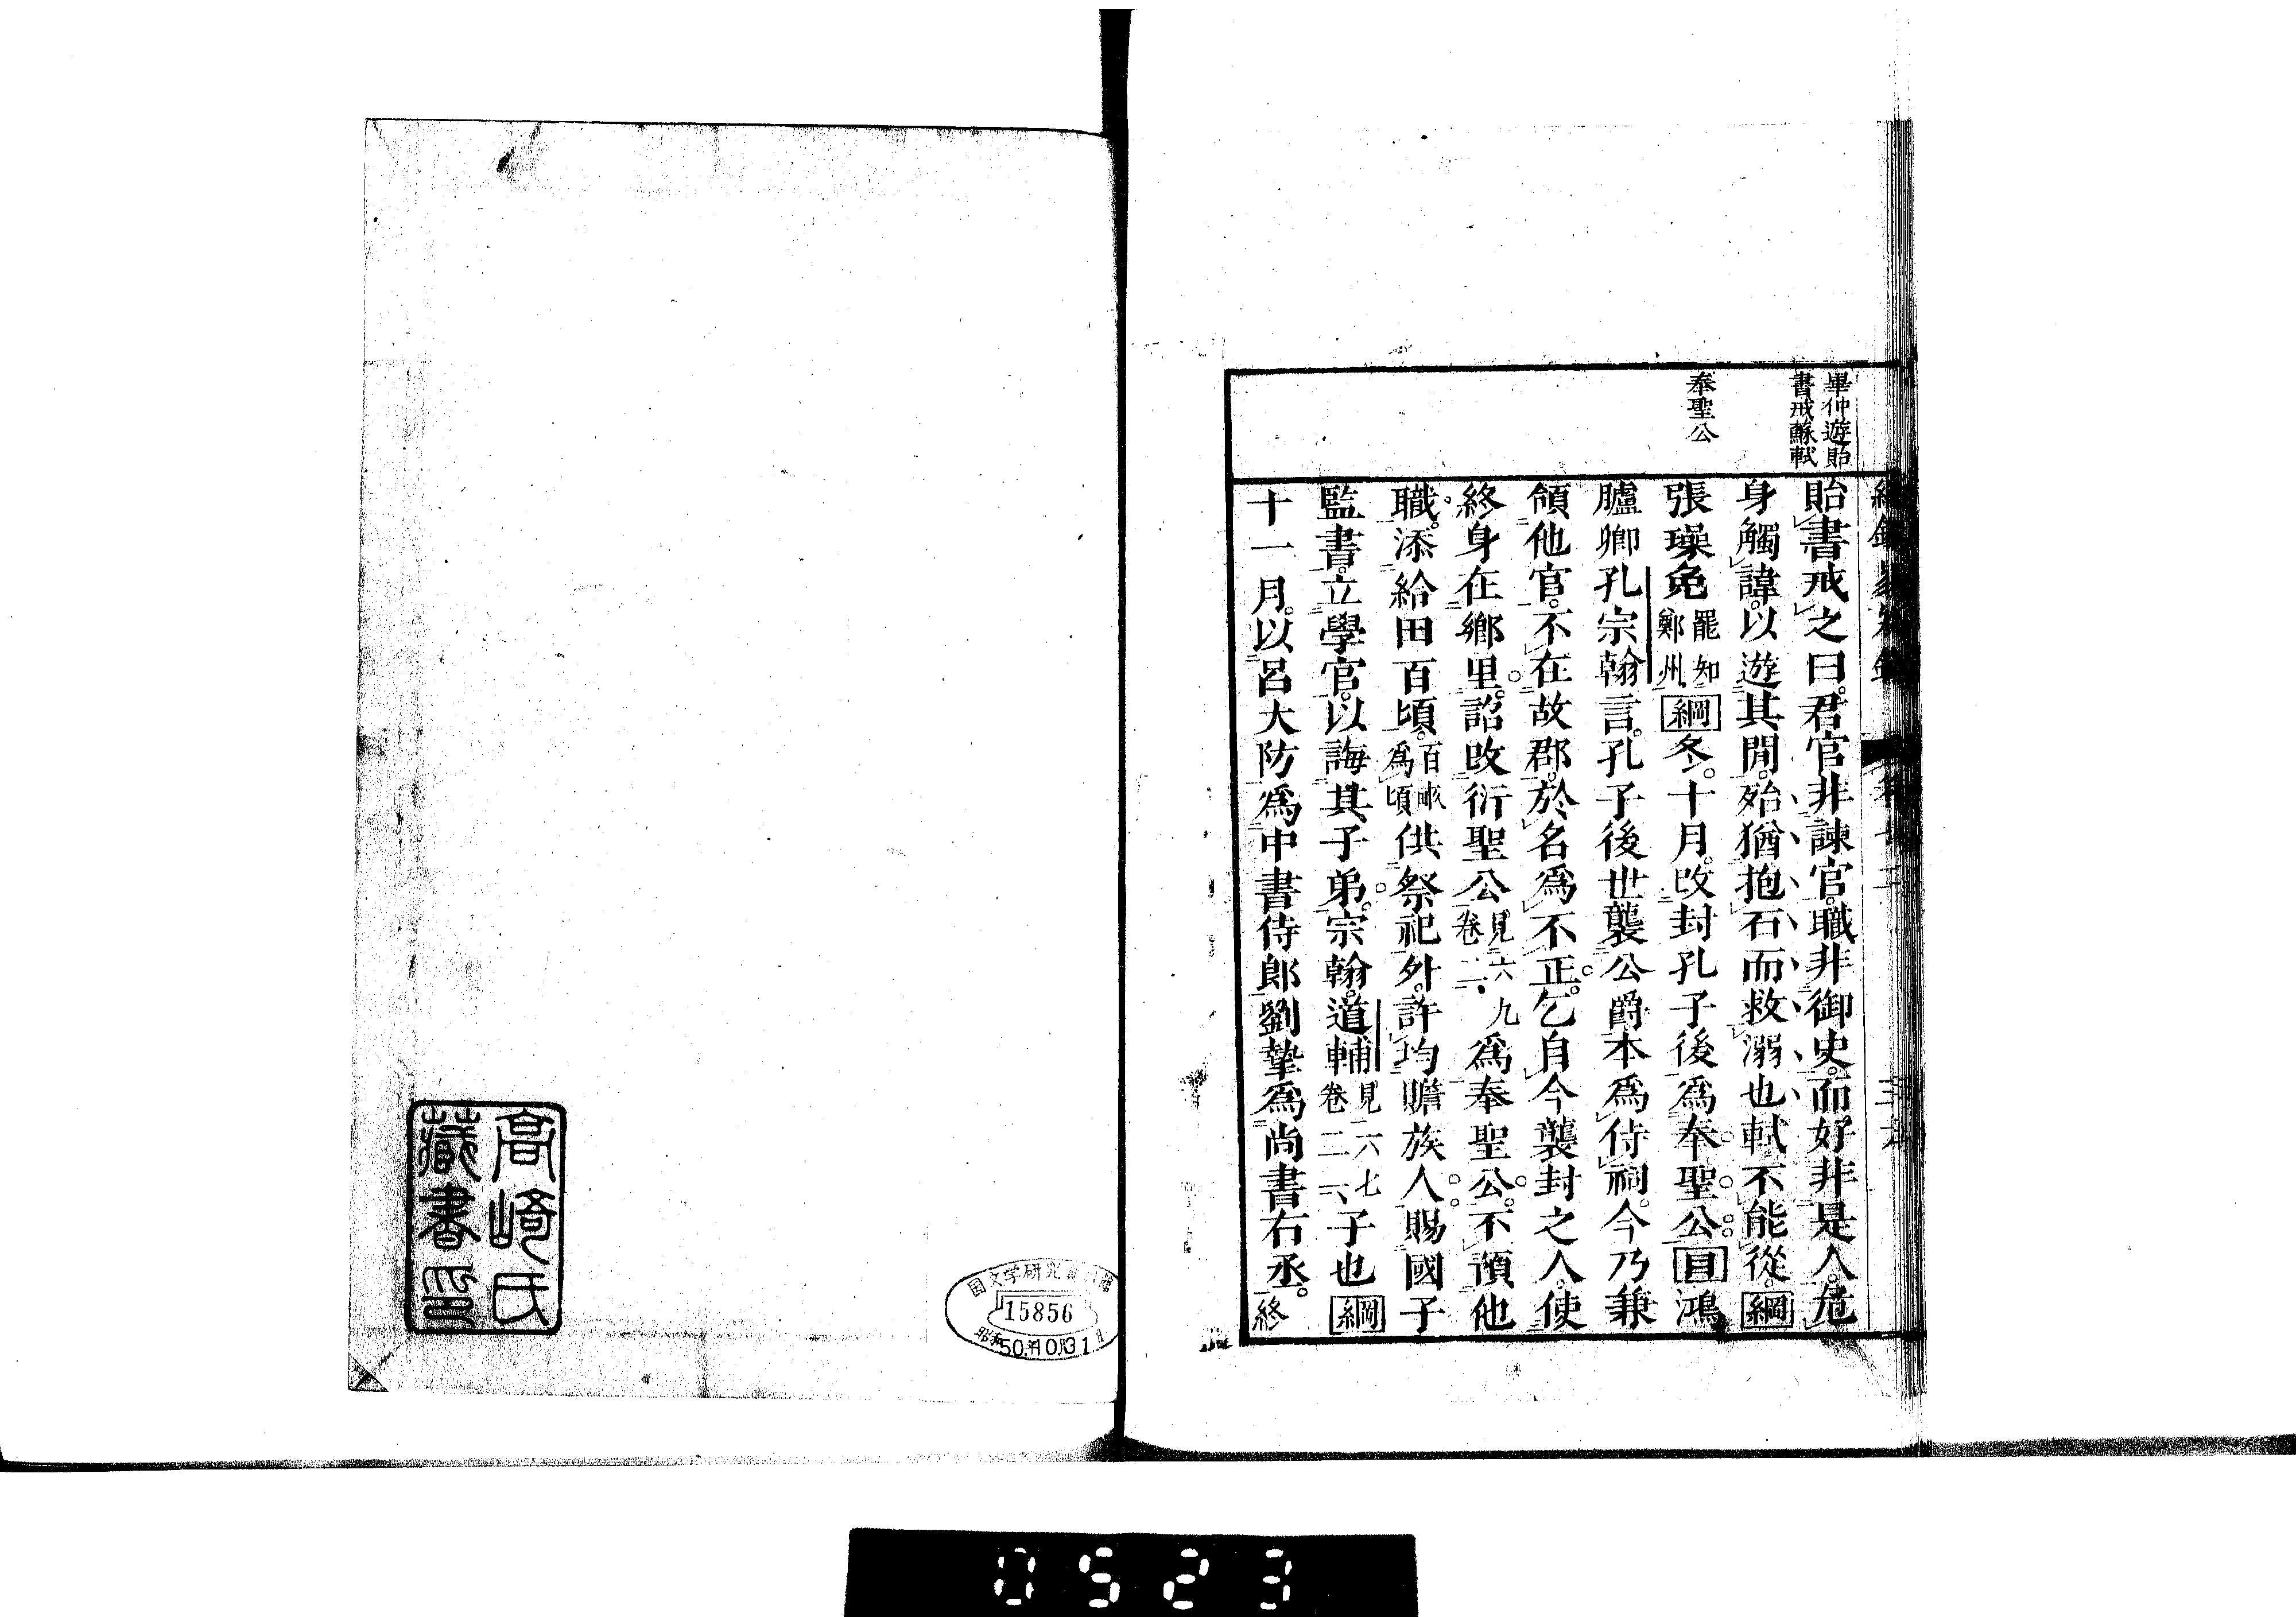 畢仲遊貽
書戒蘇軾
奉聖公
貽書戒之曰。君官非諫官。職非御史。而好非是人。危
身觸諱。以遊其間。殆猶抱石而救溺也軾不能從。綱
張璪免罷知鄭州綱冬。十月。改封孔子後爲奉聖公目鴻
臚卿孔宗翰言。孔子後世襲公爵本爲侍祠。今乃兼
領他官。不在故郡。於名爲不正。乞自今襲封之人。使
終身在鄉里。詔改衍聖公見六九卷二爲奉聖公。不預他
職。添給田百頃。百畝爲頃供祭祀外。許均贍族人。賜國子
監書。立學官。以誨其子弟。宗翰。道輔見六七卷二一子也綱
十一月。以呂大防爲中書侍郎劉摯爲尚書右丞。終
高崎氏
藏書印
国文学研究資料館
15856
昭和50年10月31日
0523